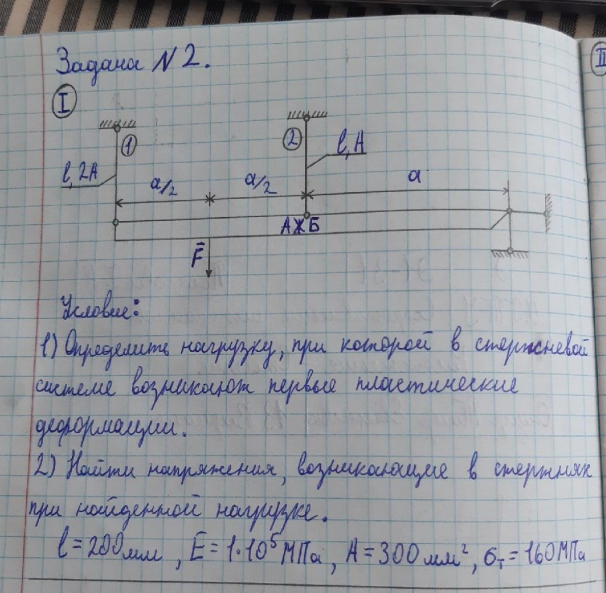 Задача N2.
I
II
1
2
l, 2A
l, A
a/2
a/2
a
АЖБ
F
Условие:
1) Определить нагрузку, при которой в стержневой
системе возникают первые пластические
деформации.
2) Найти напряжения, возникающие в стержнях
при найденной нагрузке.
l=200мм, E=1·10⁵МПа, A=300мм², σт=160МПа